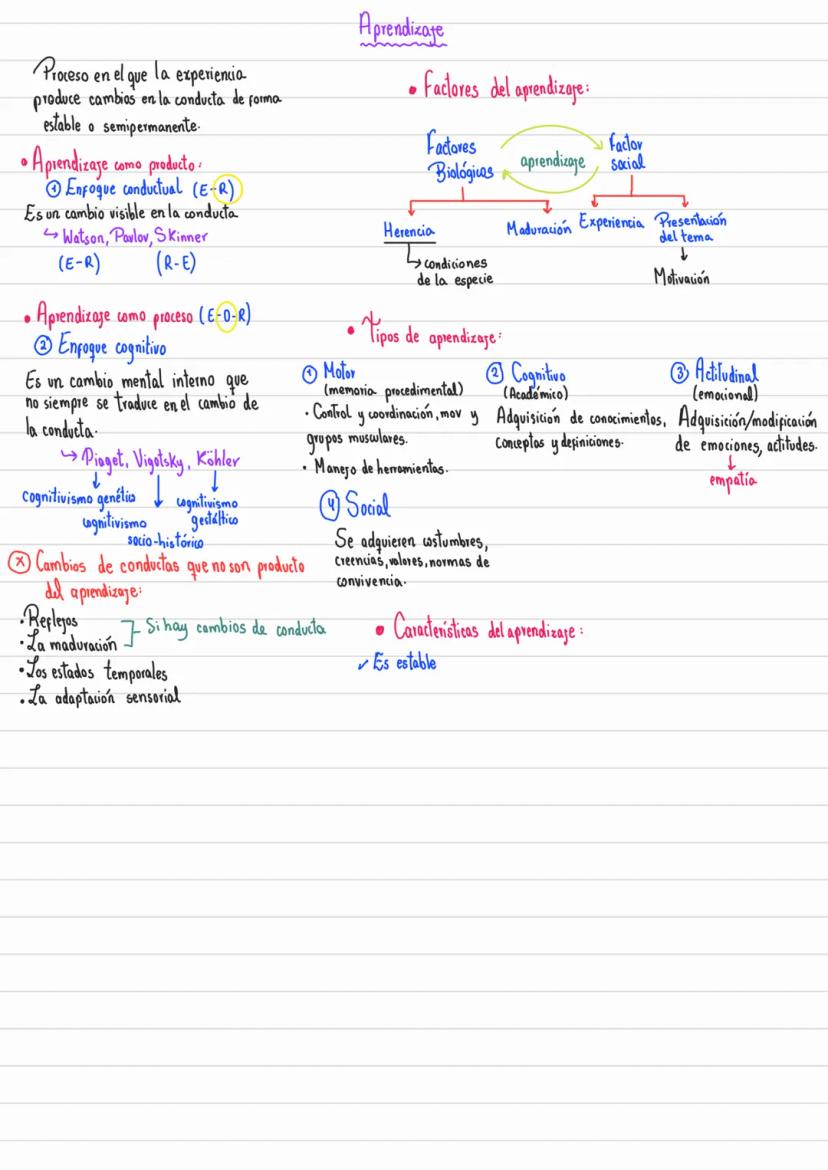 Aprendizaje
Proceso en el que la experiencia
produce cambios en la conducta de forma
estable o semipermanente.
• Aprendizaje como producto:
① Enfoque conductual (E-R)
Es un cambio visible en la conducta
↳ Watson, Pavlov, Skinner
(E-R) (R-E)
• Aprendizaje como proceso (E-O-R)
② Enfoque cognitivo
Es un cambio mental interno que
no siempre se traduce en el cambio de
la conducta.
↳ Piaget, Vigotsky, Köhler
cognitivismo genético
cognitivismo
socio-histórico
cognitivismo
gestáltico
(x) Cambios de conductas que no son producto
del aprendizaje:
• Reflejos
• La maduración
Si hay cambios de conducta
• Los estados temporales
• La adaptación sensorial
• Factores del aprendizaje:
Factores
Biológicos
aprendizaje
Factor
social
Herencia
Maduración
Experiencia
Presentación
del tema
↳ condiciones
de la especie
Motivación
• Tipos de aprendizaje:
① Motor
(memoria procedimental)
• Control y coordinación, mov y
grupos musculares.
• Manejo de herramientas.
② Cognitivo
(Académico)
Adquisición de conocimientos,
conceptos y definiciones.
③ Actitudinal
(emocional)
Adquisición/modificación
de emociones, actitudes.
empatía
④ Social
Se adquieren costumbres,
creencias, valores, normas de
convivencia.
• Características del aprendizaje:
✓ Es estable